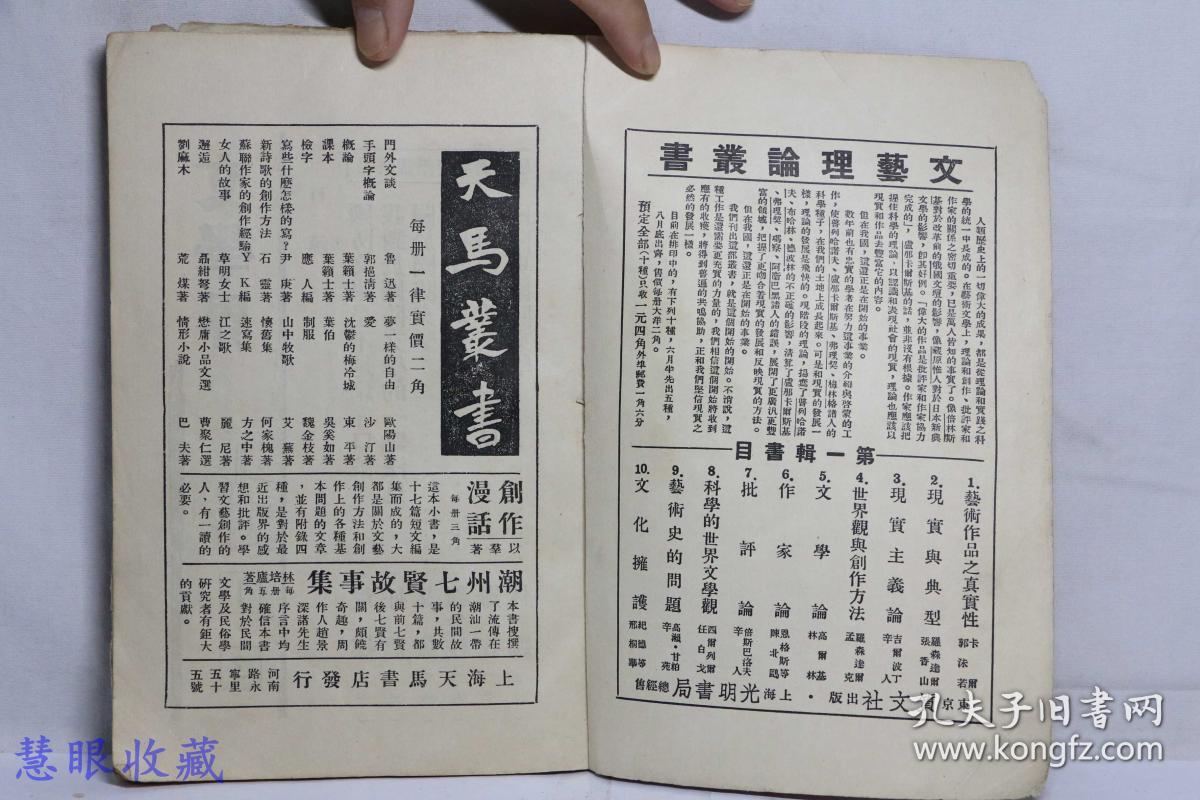 文藝理論叢書
人類歷史上的一切偉大的成果，都是從理論和實踐之科
學的統一中長成的。在藝術文學上，理論和創作、批評家和
作家的關係之密切重要，已是萬人皆知的事實了。像倍林斯
基對於改革前的俄國文壇的影響，像藏原惟人對於日本新興
文學的影響，即其好例。「偉大的作品是批評家和作家協力
完成的」，盧那卡爾斯基的話，並非沒有根據。作家應該把
握住科學的理論，以認識和表現社會的現實，理論也應該以
現實和作品去豐富它的內容。
但在我國，這還正是在開始的事業。
數年前也有忠實的學者在努力這事業的介紹與啓蒙的工
作，使普列哈諾夫、盧那卡爾斯基、弗理契、梅林格諸人的
科學種子，在我們的土地上成長起來。可是和現實的發展一
樣，理論的發展是飛快的。現階段的理論，揚棄了普列哈諾
夫、布哈林、德波林的不正確的影響，清算了盧那卡爾斯基
、弗理契、瑪察、阿衛巴黑諸人的錯誤，展開了更廣汎更豐
富的領域，把握了更吻合着現實的發展和反映現實的方法。
但在我國，這還正是在開始的事業。
我們刊出這部叢書，就是這個開始的開始。不消說，這
種工作是還需要更充實的力量的，我們相信這個開始將收到
應有的收穫，將得到普遍的共鳴協助，正和我們堅信現實之
必然的發展一樣。
目前在排印中的，有下列十種，六月半先出五種，
八月底出齊，售價每册大洋二角。
預定全部（十種）只收一元四角外埠郵費一角六分
第一輯書目
1.藝術作品之真實性 卡爾 郭沫若
2.現實與典型 羅森達爾 張香山
3.現實主義論 吉爾波丁 辛人
4.世界觀與創作方法 羅森達爾 孟克
5.文學論 高爾基 林林
6.作家論 恩格斯等 陳北鷗
7.批評論 倍斯巴洛夫 辛人
8.科學的世界文學觀 西爾列爾 任白戈
9.藝術史的問題 高瀨·甘粕 辛苑
10.文化擁護 紀德等 邢桐華
東京質文社出版·上海光明書局總經售
天馬叢書
每册一律實價二角
門外文談 魯迅著
手頭字概論 郭挹清著
概論 葉籟士著
課本 葉籟士著
檢字 應人編
寫些什麼怎樣的寫？ 尹庚著
新詩歌的創作方法 石靈著
蘇聯作家的創作經驗 Y K編
女人的故事 草明女士
邂逅 聶紺弩著
劉麻木 荒煤著
夢一樣的自由 歐陽山著
愛 沙汀著
沈鬱的梅冷城 東平著
葉伯 吳奚如著
制服 魏金枝著
山中牧歌 艾蕪著
懷舊集 何家槐著
速寫集 方之中著
江之歌 麗尼著
懋庸小品文選 曹聚仁選
情形小說 巴夫著
創作漫話
以羣著
每册三角
這本小書，是
十七篇短文編
集而成的，大
都是關於文藝
創作方法和創
作上的各種基
本問題的文章
，並有附錄四
種，是對於最
近出版界的感
想和批評。學
習文藝創作的
人，有一讀的
必要。
潮州七賢故事集
林培廬著
每册五角
本書搜撰
了流傳在
潮汕一帶
的民間故
事，共數
十篇，都
與前七賢
後七賢有
關，頗饒
奇趣，周
作人趙景
深諸先生
序言中均
確信本書
對於民間
文學及民俗學
研究者有鉅大
的貢獻。
上海天馬書店發行
河南路永寧里五十五號
慧眼收藏
孔夫子旧書网
www.kongfz.com